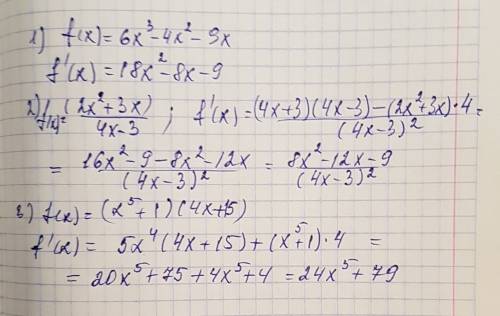 1) f(x) = 6x³ - 4x² - 9x
f'(x) = 18x² - 8x - 9
2) f(x) = (2x² + 3x)/(4x - 3) ; f'(x) = ((4x + 3)(4x - 3) - (2x² + 3x)·4)/(4x - 3)² =
= (16x² - 9 - 8x² - 12x)/(4x - 3)² = (8x² - 12x - 9)/(4x - 3)²
3) f(x) = (x⁵ + 1)(4x + 15)
f'(x) = 5x⁴(4x + 15) + (x⁵ + 1)·4 =
= 20x⁵ + 75 + 4x⁵ + 4 = 24x⁵ + 79